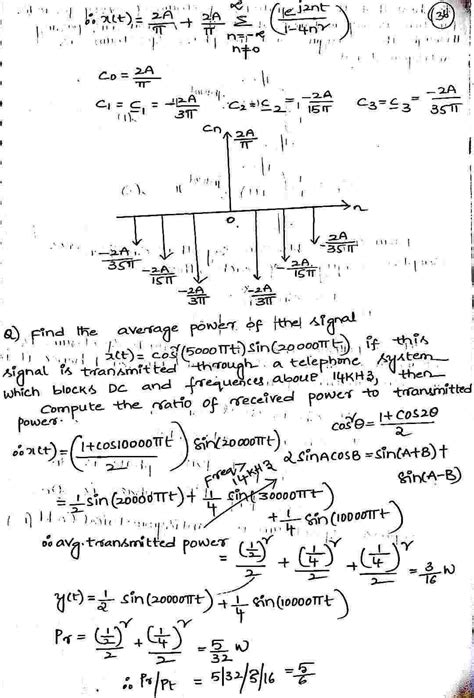 (38)
∴ x(t) = 2A/π + 2A/π Σ_{n=-∞, n≠0}^{∞} (1 e^{j2nt} / 1-4n²)
C₀ = 2A/π
C₁ = C₋₁ = -2A/3π   C₂ = C₋₂ = -2A/15π   C₃ = C₋₃ = -2A/35π
Cn
2A/π
n
0
-2A/35π   -2A/15π   -2A/3π   -2A/3π   -2A/15π   -2A/35π
Q) Find the average power of the signal
x(t) = cos²(5000πt) sin(20000πt), if this
signal is transmitted through a telephone system
which blocks DC and frequencies above 14KHz, then
Compute the ratio of received power to transmitted
power.
cos²θ = 1+cos2θ/2
∴ x(t) = (1+cos10000πt / 2) sin(20000πt)
2 sinA cosB = sin(A+B) +
sin(A-B)
Freq > 14KHz
= 1/2 sin(20000πt) + 1/4 sin(30000πt)
+ 1/4 sin(10000πt)
∴ avg. transmitted power = (1/2)²/2 + (1/4)²/2 + (1/4)²/2 = 3/16 W
y(t) = 1/2 sin(20000πt) + 1/4 sin(10000πt)
Pr = (1/2)²/2 + (1/4)²/2 = 5/32 W
∴ Pr/Pt = 5/32/3/16 = 5/6